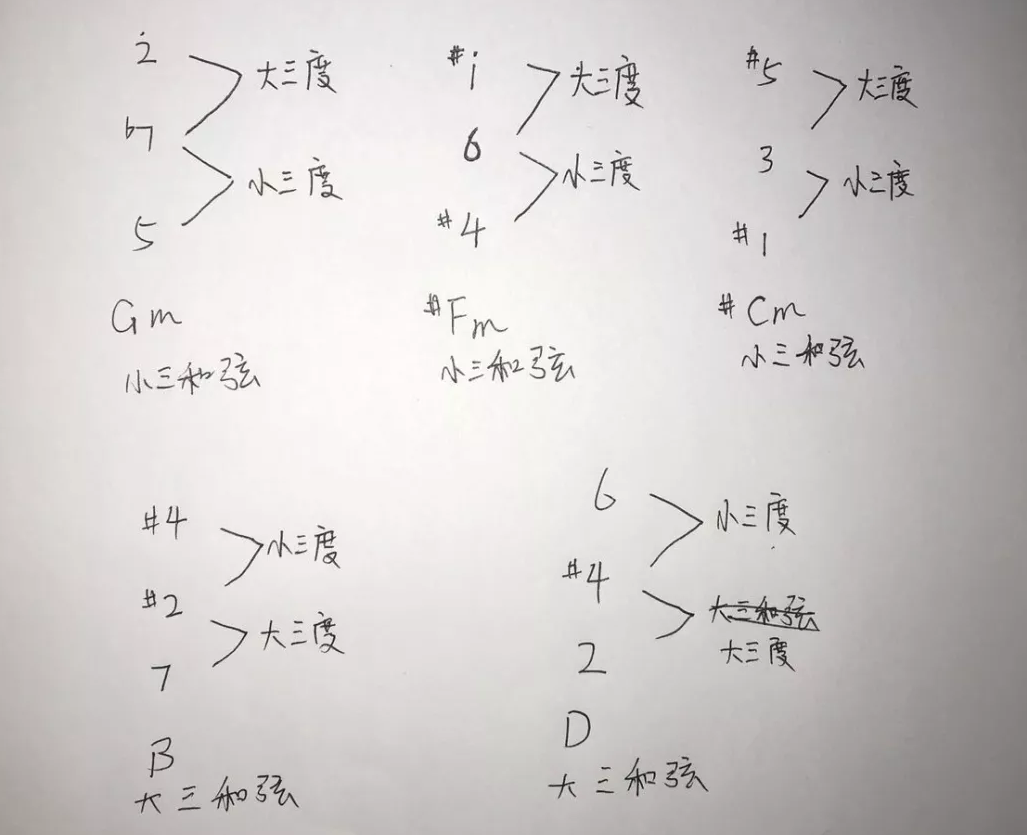 2̇ 大三度
b7 小三度
5
Gm
小三和弦
#1̇ 大三度
6 小三度
#4
#Fm
小三和弦
#5 大三度
3 小三度
#1
#Cm
小三和弦
#4 小三度
#2 大三度
7
B
大三和弦
6 小三度
#4 大三和弦
大三度
2
D
大三和弦